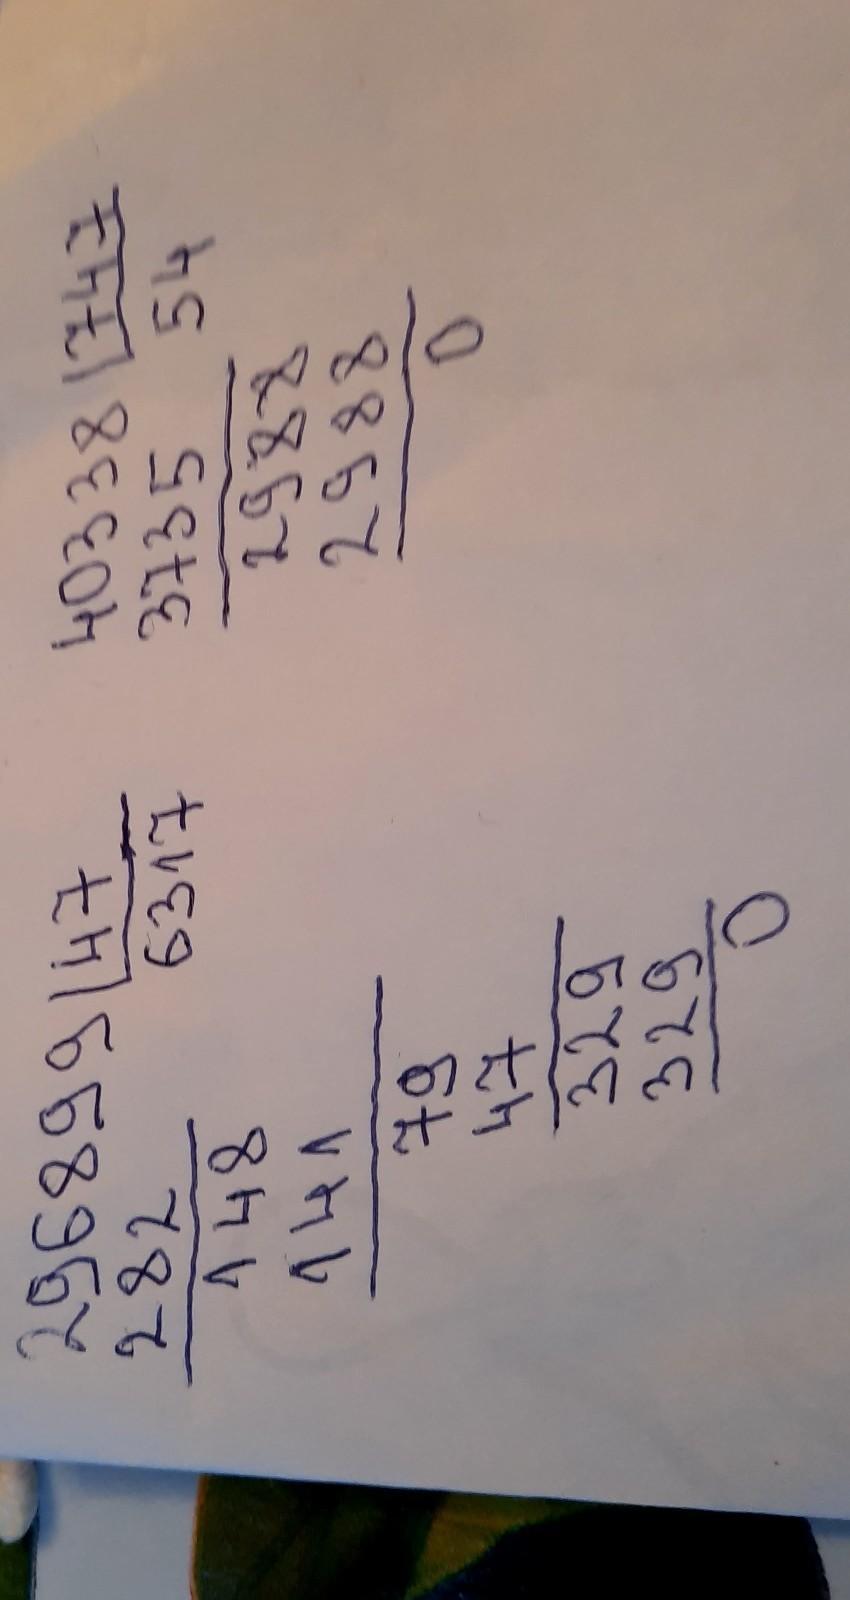 296899 47
282 6317
148
141
79
47
329
329
0
40338 747
3735 54
2988
2988
0